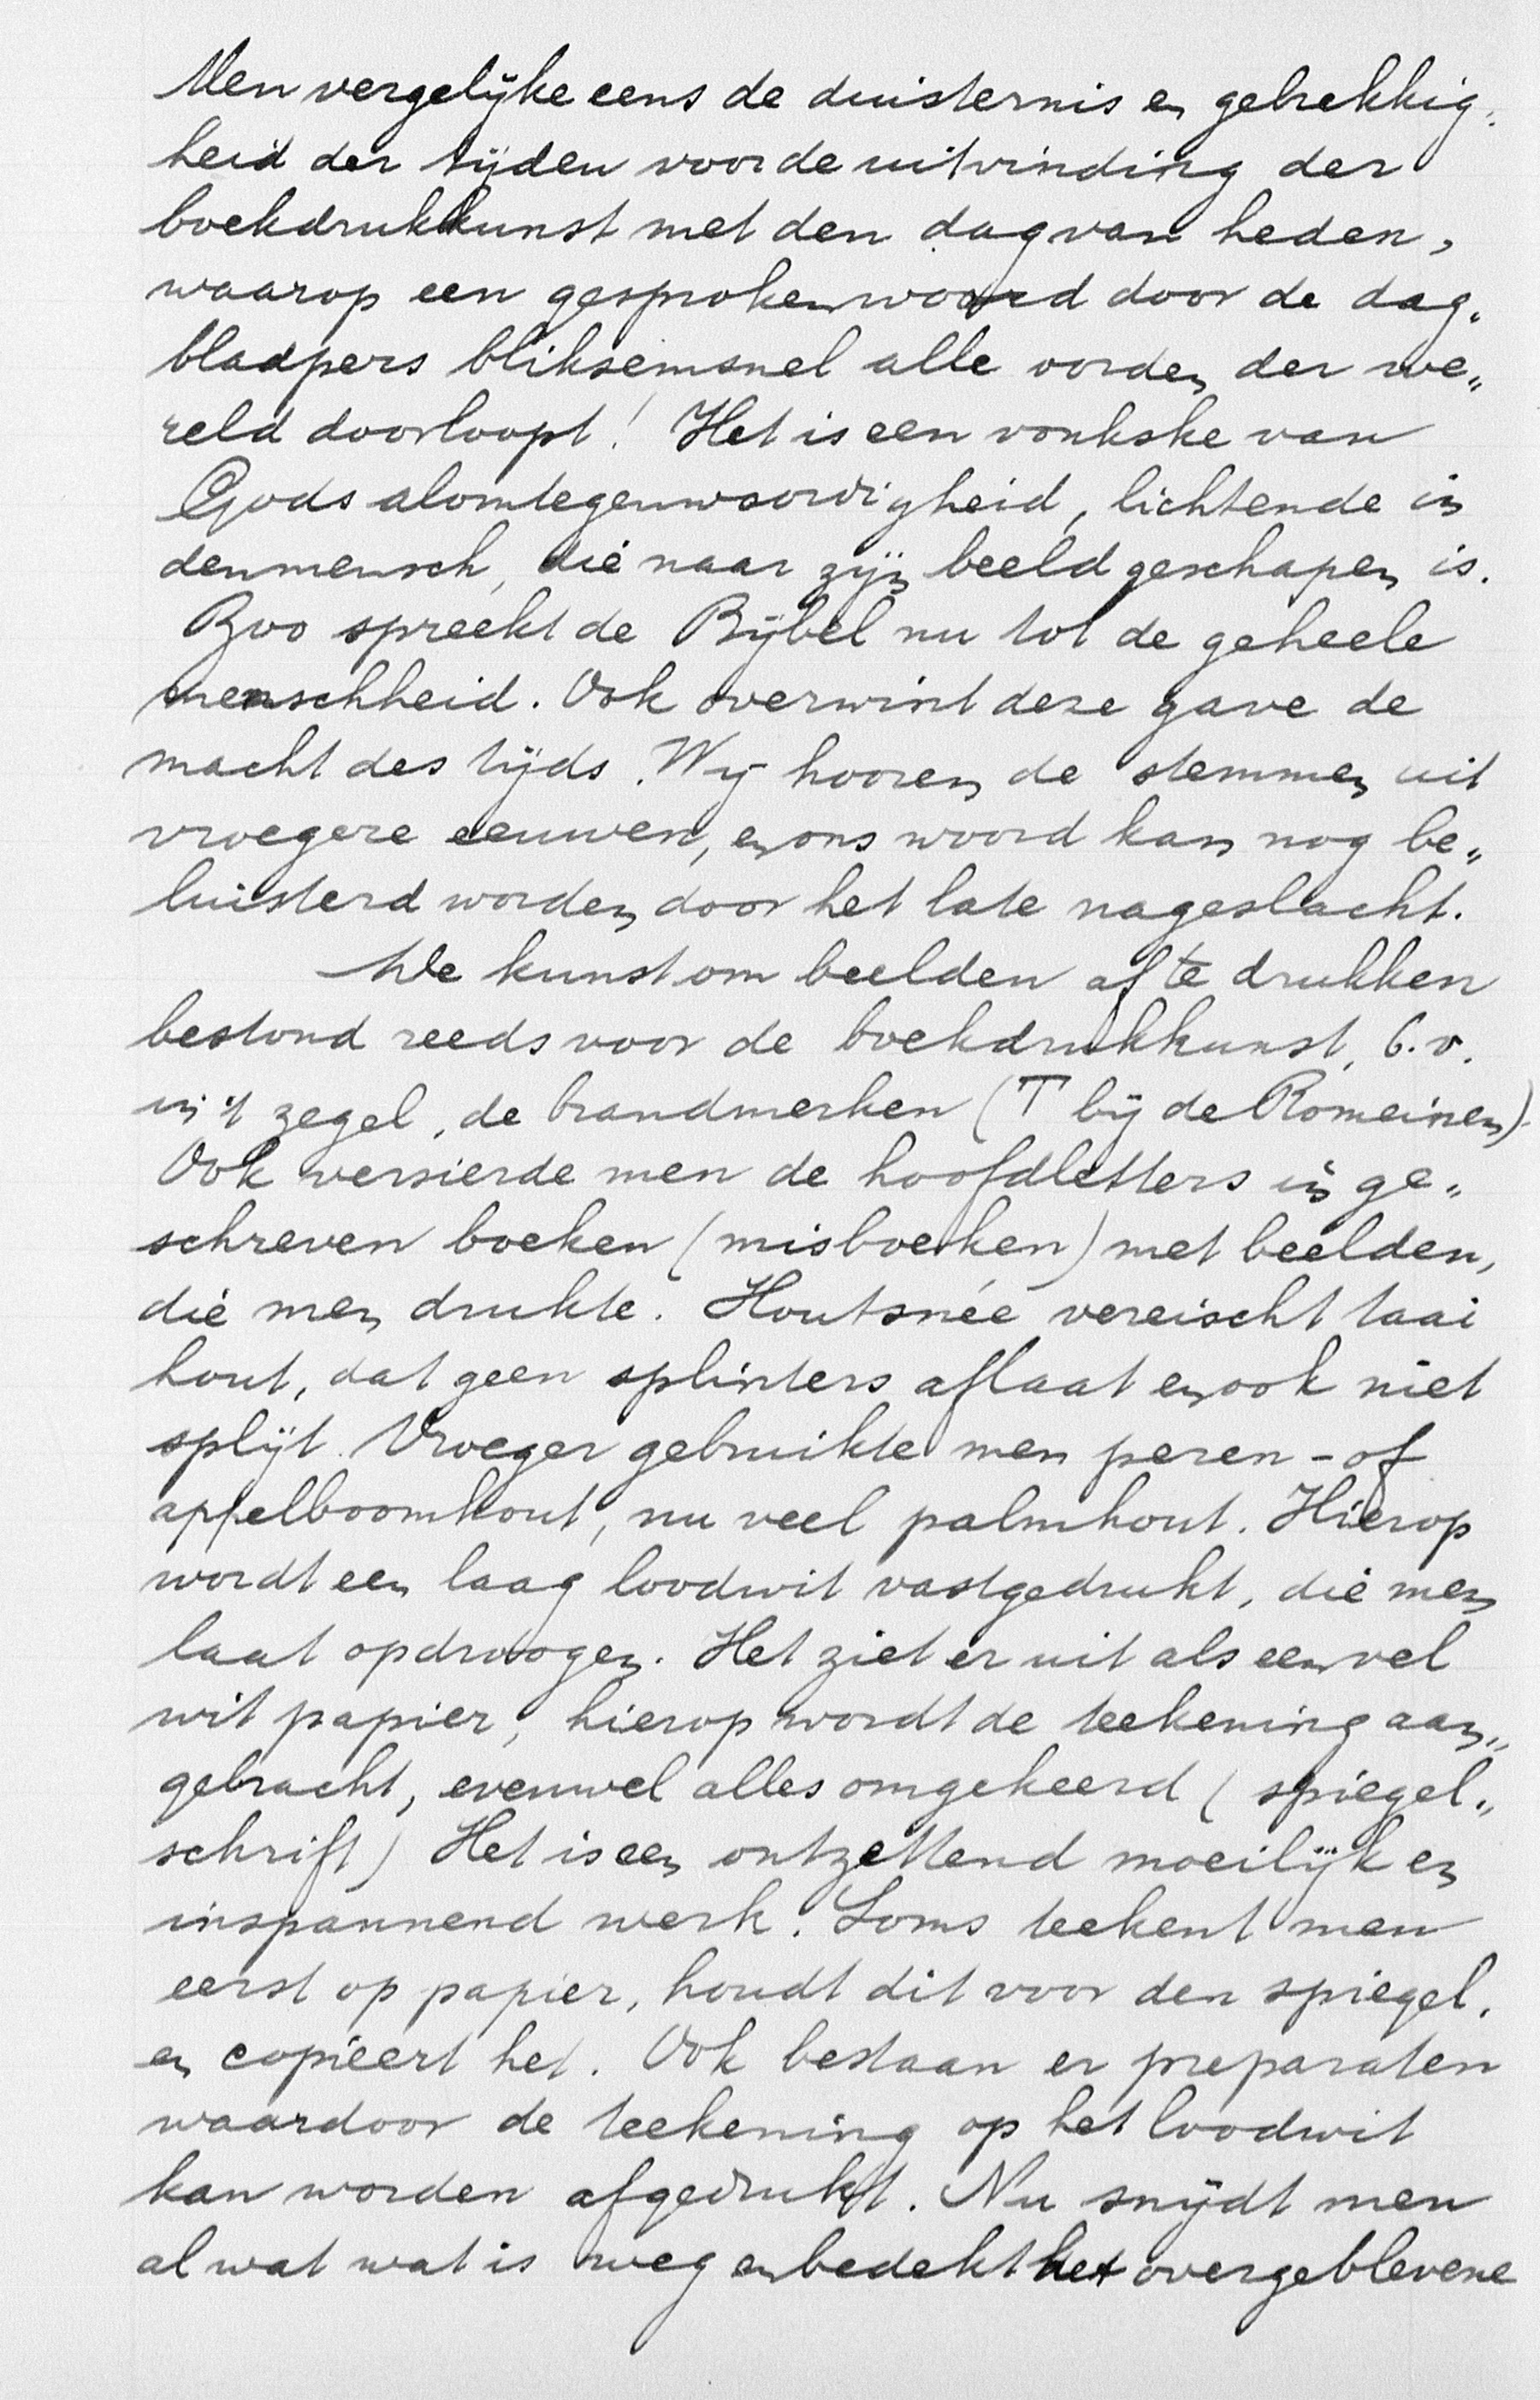 Men vergelijke eens de duisternis en gebrekkig„
heid der tijden voor de uitvinding der
boekdrukkunst met den dag van heden,
waarop een gesproken woord door de dag„
bladpers bliksemsnel alle oorden der we„
reld doorloopt! Het is een vonkske van
Gods alomtegenwoordigheid, lichtende in
den mensch, die naar zijn beeld geschapen is.
Zoo spreekt de Bijbel nu tot de geheele
menschheid. Ook overwint deze gave de
macht des tijds. Wij hooren de stemmen uit
vroegere eeuwen, en ons woord kan nog be„
luisterd worden door het late nageslacht.
De kunst om beelden af te drukken
bestond reeds voor de boekdrukkunst, b.v.
in 't zegel, de brandmerken (T bij de Romeinen).
Ook versierde men de hoofdletters in ge„
schreven boeken (misboeken) met beelden,
die men drukte. Houtsnee vereischt taai
hout, dat geen splinters aflaat en ook niet
splijt. Vroeger gebruikte men peren- of
appelboomhout, nu veel palmhout. Hierop
wordt een laag loodwit vastgedrukt, die men
laat opdroogen. Het ziet er uit als een vel
wit papier, hierop wordt de teekening aan„
gebracht, evenwel alles omgekeerd (spiegel„
schrift) Het is een ontzettend moeilijk en
inspannend werk. Soms teekent men
eerst op papier, houdt dit voor den spiegel,
en copieert het. Ook bestaan er preparaten
waardoor de teekening op het loodwit
kan worden afgedrukt. Nu snijdt men
al wat wat is weg en bedekt het overgeblevene